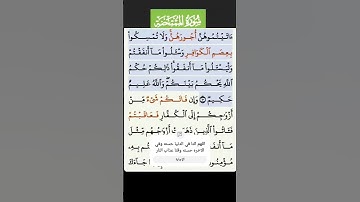 سُورَةُ الْمُمْتَحِنَةِ
ءَاتَيْتُمُوهُنَّ أُجُورَهُنَّ وَلَا تُمْسِكُوا
بِعِصَمِ الْكَوَافِرِ وَسْـَٔلُوا مَا أَنفَقْتُمْ
وَلْيَسْـَٔلُوا مَا أَنفَقُوا ذَٰلِكُمْ حُكْمُ
اللَّهِ يَحْكُمُ بَيْنَكُمْ وَاللَّهُ عَلِيمٌ
حَكِيمٌ وَإِن فَاتَكُمْ شَىْءٌ مِّنْ
أَزْوَاجِكُمْ إِلَى الْكُفَّارِ فَعَاقَبْتُمْ
فَـَٔاتُوا الَّذِينَ ذَهَبَتْ أَزْوَاجُهُم مِّثْلَ
مَا أَنفَ
اللهم اتنا في الدنيا حسنه وفي
الاخره حسنه وقنا عذاب النار
بِهِۦ
مُؤْمِنُونَ
جَاءَكَ